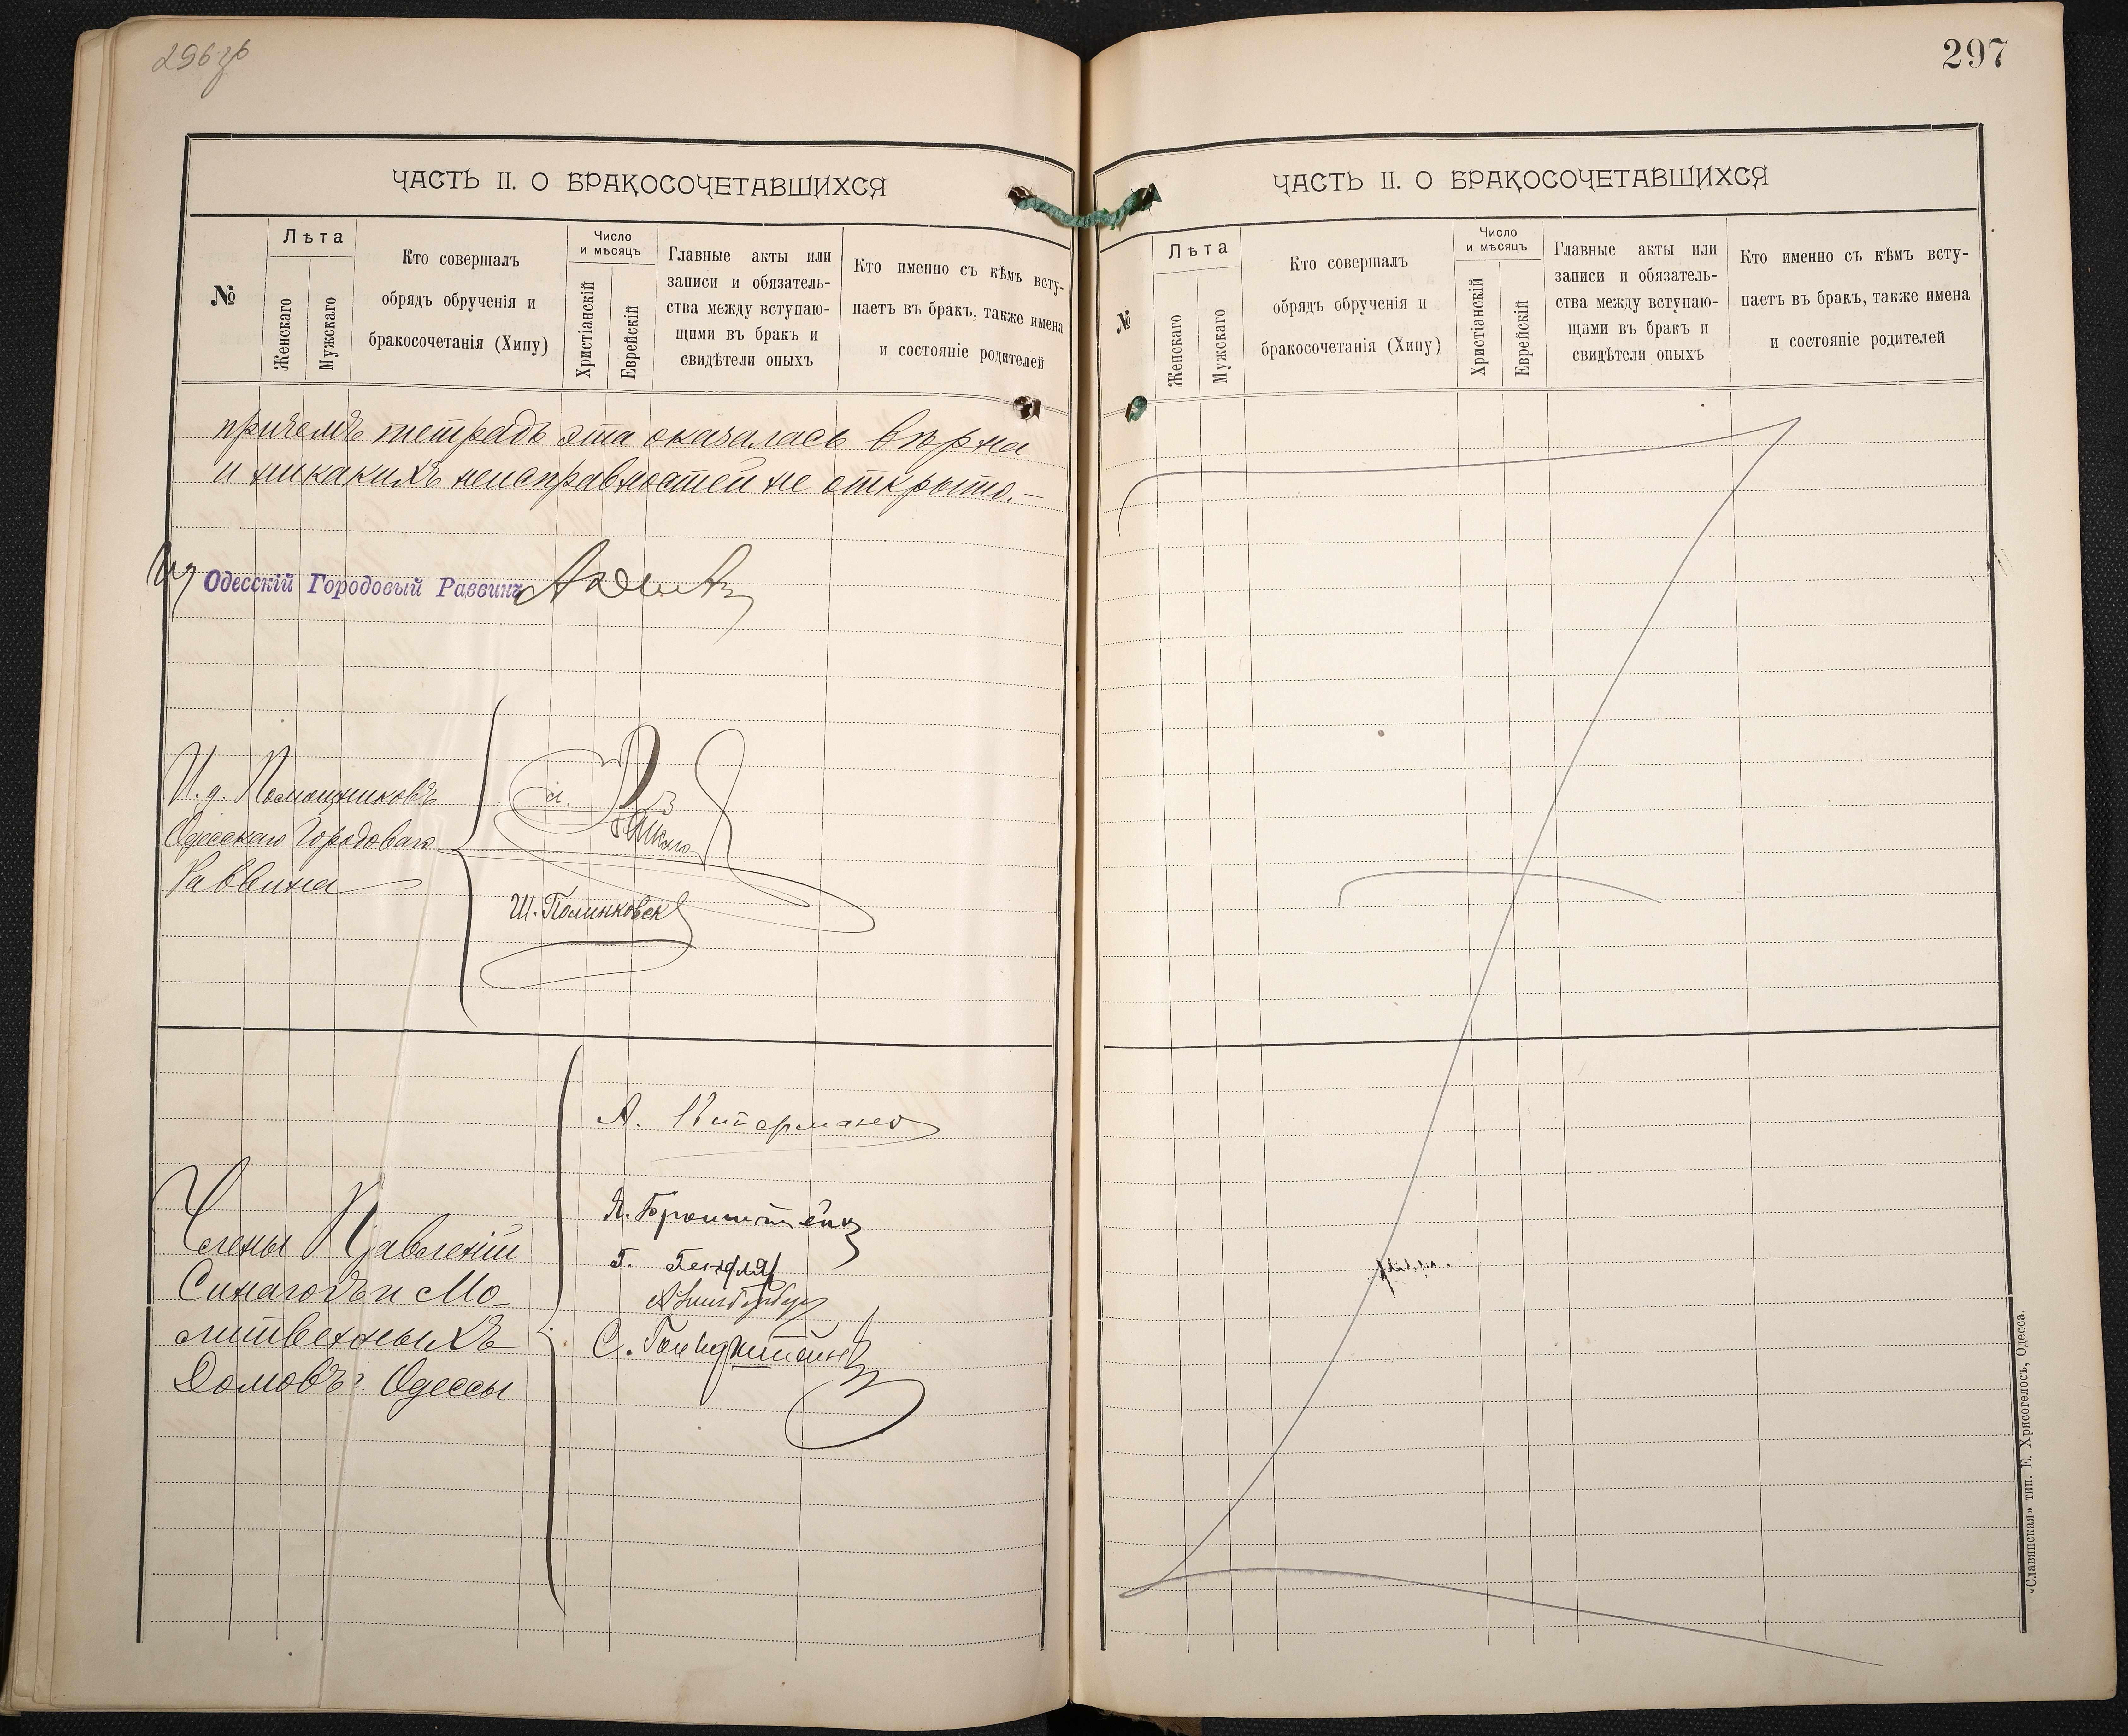 296 об
ЧАСТЬ II. О БРАКОСОЧЕТАВШИХСЯ
№
Лѣта
Женскаго
Мужскаго
Кто совершалъ
обрядъ обрученія и
бракосочетанія (Хипу)
Число
и мѣсяцъ
Христіанскій
Еврейскій
Главные акты или
записи и обязатель-
ства между вступаю-
щими въ бракъ и
свидѣтели оныхъ
Кто именно съ кѣмъ всту-
паетъ въ бракъ, также имена
и состояніе родителей
причемъ тетрадь эта оказалась вѣрна
и никакихъ неисправностей не открыто.—
Одесскій Городовый Раввинъ
И. д. Помощниковъ
Одесскаго Городоваго
Раввина
Ш. Полинковск
Члены Правленій
Синагогъ и Мо-
литвенныхъ
Домовъ г. Одессы
А.
Я. Бронштейнъ
Г.
С. Гольдштейнъ
297
ЧАСТЬ II. О БРАКОСОЧЕТАВШИХСЯ
№
Лѣта
Женскаго
Мужскаго
Кто совершалъ
обрядъ обрученія и
бракосочетанія (Хипу)
Число
и мѣсяцъ
Христіанскій
Еврейскій
Главные акты или
записи и обязатель-
ства между вступаю-
щими въ бракъ и
свидѣтели оныхъ
Кто именно съ кѣмъ всту-
паетъ въ бракъ, также имена
и состояніе родителей
«Славянская» тип. Е. Хрисогелосъ, Одесса.